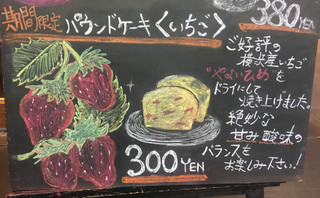 期間限定 パウンドケーキ〈いちご〉
380YEN
ご好評の
横光産いちご
"やよいひめ"を
ドライにして
焼き上げました。
絶妙な
甘み酸味の
バランスを
お楽しみ下さい!
300YEN